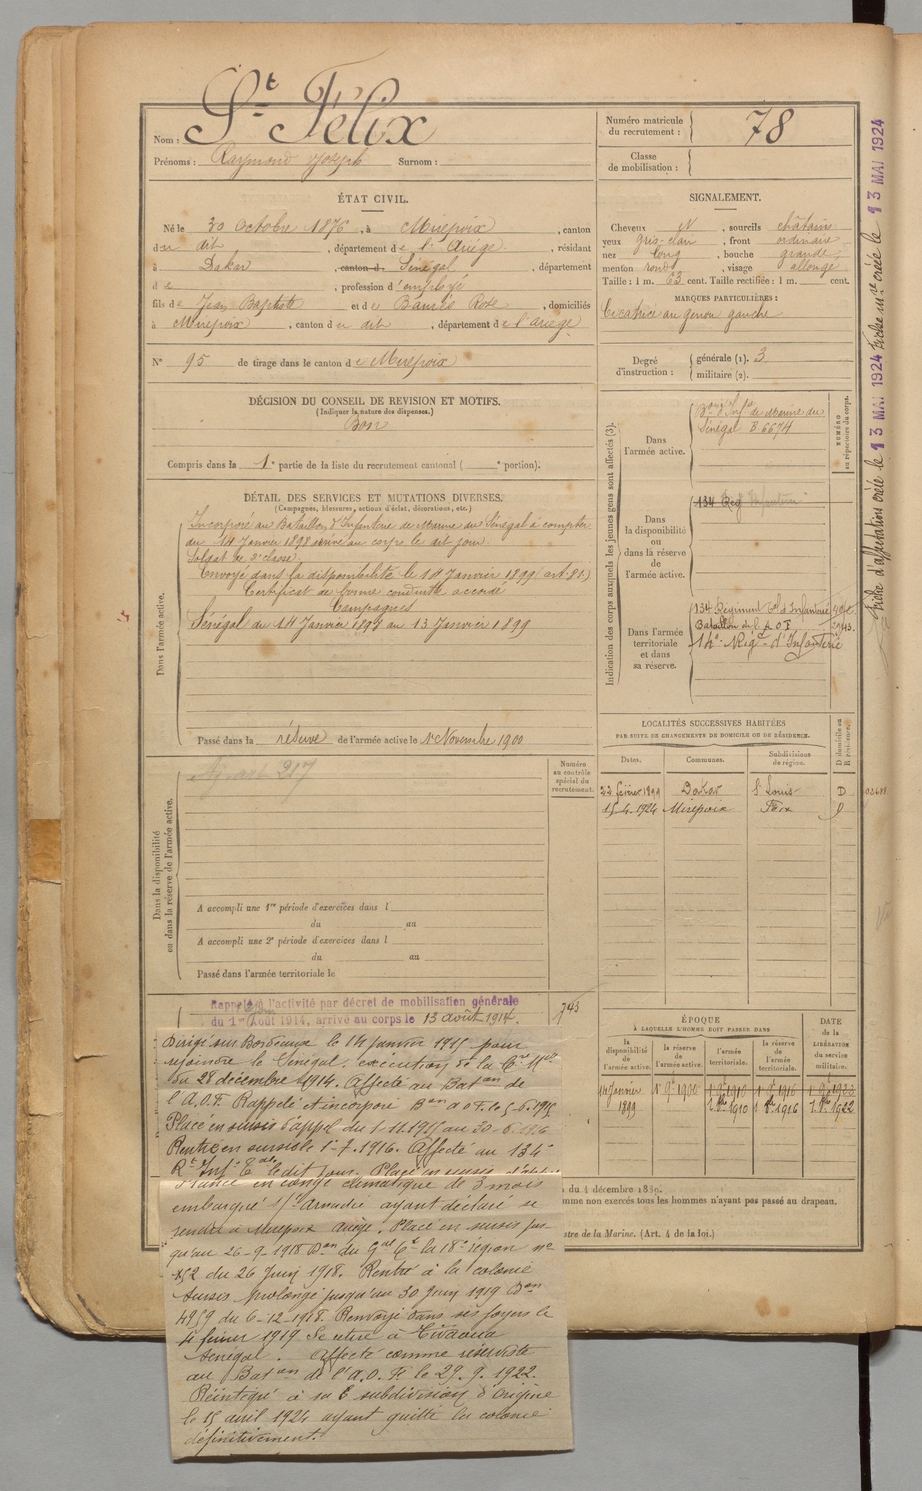 Nom : St Félix
Prénoms : Raymond Joseph Surnom :
ÉTAT CIVIL.
Né le 30 Octobre 1876, à Mirepoix, canton
du dit, département de l'Ariège, résidant
à Dakar, canton d. Sénégal, département
d e, profession d'employé
fils de Jean Baptiste et de Barrès Rose, domiciliés
à Mirepoix, canton du dit, département de l'Ariège
N° 95 de tirage dans le canton de Mirepoix
DÉCISION DU CONSEIL DE REVISION ET MOTIFS.
(Indiquer la nature des dispenses.)
Bon
Compris dans la 1e partie de la liste du recrutement cantonal ( e portion).
DÉTAIL DES SERVICES ET MUTATIONS DIVERSES.
(Campagnes, blessures, actions d'éclat, décorations, etc.)
Dans l'armée active.
Incorporé au Bataillon d'Infanterie de Marine du Sénégal à compter
du 14 Janvier 1898 arrivé au corps le dit jour
Soldat de 2e classe.
Envoyé dans la disponibilité le 14 Janvier 1899 (art. 81.)
Certificat de bonne conduite accordé
Campagnes
Sénégal du 14 Janvier 1898 au 13 Janvier 1899
Passé dans la réserve de l'armée active le 1er Novembre 1900
Numéro
au contrôle
spécial du
recrutement.
Dans la disponibilité
ou dans la réserve de l'armée active.
217
A accompli une 1re période d'exercices dans l
du au
A accompli une 2e période d'exercices dans l
du au
Passé dans l'armée territoriale le
Rappelé à l'activité par décret de mobilisation générale
du 1er Août 1914, arrivé au corps le 13 août 1914.
743
Dirigé sur Bordeaux le 14 janvier 1915 pour
rejoindre le Sénégal. exécution de la Cre Mlle
du 28 décembre 1914. Affecté au Baton de
l'A.O.F. Rappelé et incorporé Bon AOF. le 5-6-1915
Placé en sursis d'appel du 1-11-1915 au 30-6-1916
Rentré en sursis le 1-7-1916. Affecté au 134e
Rt Inf. Tale le dit jour. Placé en sursis d'
France en congé climatique de 3 mois
embarqué ayant déclaré se
rendre à Mirepoix Ariège. Placé en sursis jus-
qu'au 26-9-1918 Don du Gal Ct la 18e région no
152 du 26 Juin 1918. Rentré à la colonie
sursis prolongé jusqu'au 30 Juin 1919 Don
4959 du 6-12-1918. Renvoyé dans ses foyers le
4 février 1919 Se retire à Tivaoua
Sénégal. Affecté comme réserviste
au Baton de l'A.O.F. le 29.9.1922.
Réintégré à sa subdivision d'origine
le 15 avril 1924 ayant quitté la colonie
définitivement.
Numéro matricule
du recrutement : 78
Classe
de mobilisation :
SIGNALEMENT.
Cheveux et, sourcils châtains
yeux gris-clair, front ordinaire
nez long, bouche grande,
menton rond, visage allongé
Taille : 1 m. 63 cent. Taille rectifiée : 1 m. cent.
MARQUES PARTICULIÈRES :
Cicatrice au genou gauche
Degré
d'instruction :
générale (1). 3
militaire (2).
Indication des corps auxquels les jeunes gens sont affectés (3).
NUMÉRO
au répertoire du corps.
Dans
l'armée active.
Bon d'Infie de Marine du
Sénégal B 6674
Dans
la disponibilité
ou
dans la réserve
de
l'armée active.
134 Régt Infanterie
Dans l'armée
territoriale
et dans
sa réserve.
134 Régiment Tal d'Infanterie
Bataillon de l'A O F
14e Régt d'Infanterie
LOCALITÉS SUCCESSIVES HABITÉES
PAR SUITE DE CHANGEMENTS DE DOMICILE OU DE RÉSIDENCE.
D domicile ou
R résidence.
Dates. Communes. Subdivisions
de région.
22 février 1899 Dakar St Louis D
15.4.1924 Mirepoix Foix D
ÉPOQUE
À LAQUELLE L'HOMME DOIT PASSER DANS
DATE
de la
LIBÉRATION
du service
militaire.
la
disponibilité
de
l'armée active.
la réserve
de
l'armée active.
l'armée
territoriale.
la réserve
de
l'armée
territoriale.
14 Janvier 1899
1er 9bre 1900
1er 9 1910
1er 9 1916
1er 9 1922
1. 8bre 1910
1 8bre 1916
1. 8bre 1922
du 4 décembre 1889.
mme non exercés tous les hommes n'ayant pas passé au drapeau.
stre de la Marine. (Art. 4 de la loi.)
Fiche d'affectation créée le 13 MAI 1924 Fiche mle créée le 13 MAI 1924